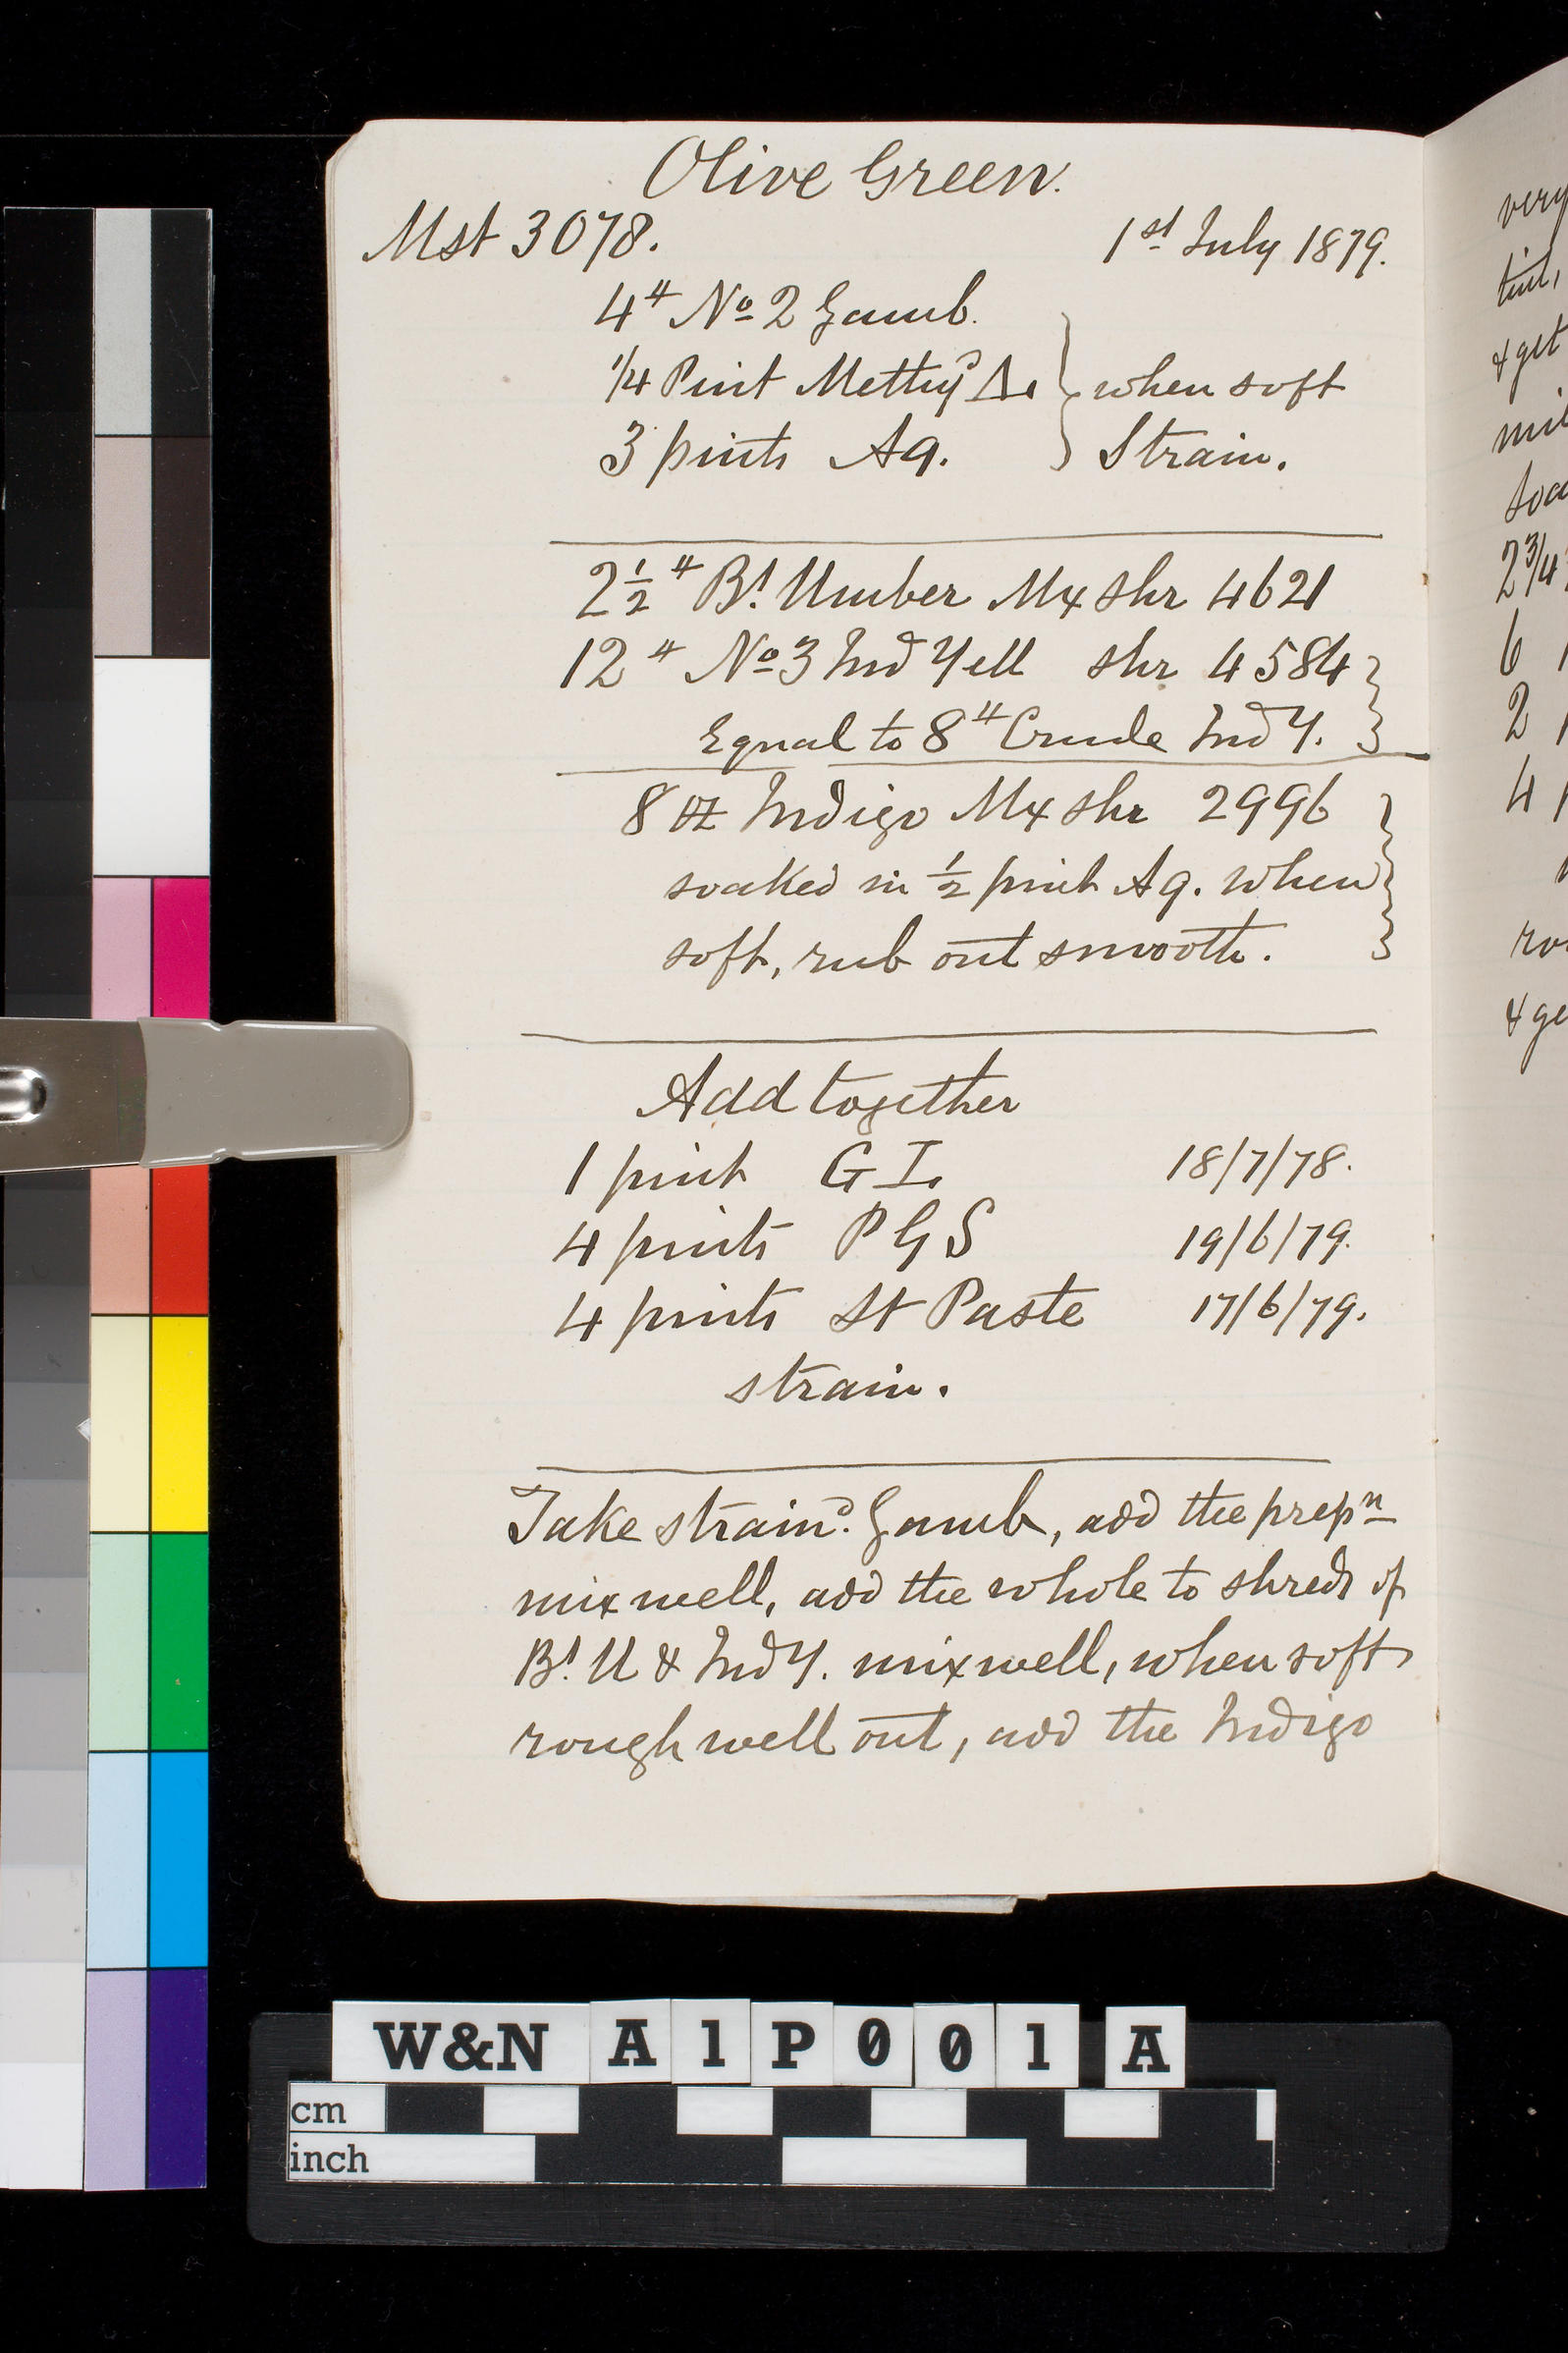 Olive Green.
Mst 3078. 1st July 1879.
4# No 2 Gamb.
1/4 Pint Methyd Δ. } when soft
3 pints Aq. } Strain.
2½# Bt. Umber Mx shr 4621
12# No 3 Ind Yell shr 4584 }
Equal to 8# Crude Ind Y. }
8 oz Indigo Mx shr 2996 }
soaked in ½ pint Aq. when }
soft, rub out smooth. }
Add together
1 pint G I. 18/7/78.
4 pints P G S 19/6/79.
4 pints St Paste 17/6/79.
strain.
Take straind. Gamb, add the prepn
mix well, add the whole to shreds of
Bt. U & Ind Y. mix well, when soft
rough well out, add the Indigo
very
tint,
& get
2 3/4
6
2
4
W&N A1P001 A
cm
inch